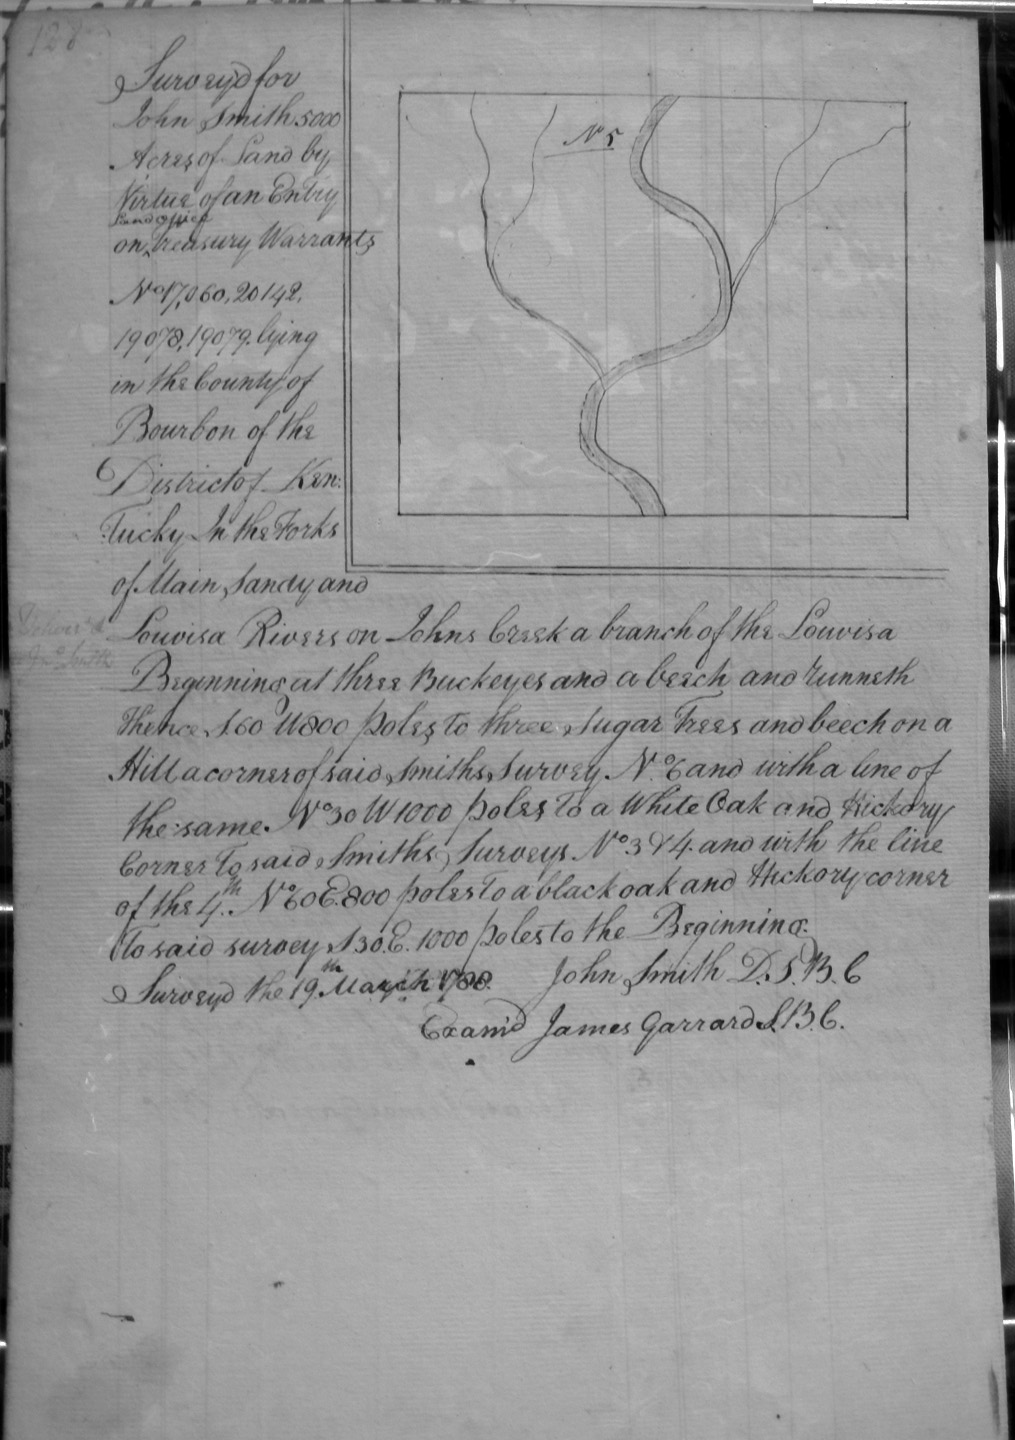 128
Surveyd for
John Smith 5000
Acres of Land by
Virtue of an Entry
Land office
on Treasury Warrants
No 17,060, 20142,
19078, 19079. lying
in the County of
Bourbon of the
District of Ken:
:tucky In the Forks
of Main Sandy and
Louvisa Rivers on Johns Creek a branch of the Louvisa
Beginning at three Buckeyes and a beech and runneth
Thence S60 W800 poles to three Sugar Trees and beech on a
Hill a corner of said Smiths Survey No. 6 and with a line of
the same. No 30 W 1000 poles to a White Oak and Hickory
Corner To said Smiths Surveys No 3 & 4. and with the line
of the 4th. No 60 E. 800 poles To a black oak and Hickory corner
To said survey S 30. E. 1000 poles to the Beginning.
Surveyd the 19th March 1788. John Smith D. S. B. C
Examd James Garrard S. B. C.
No 5
Deliver'd
Jno Smith